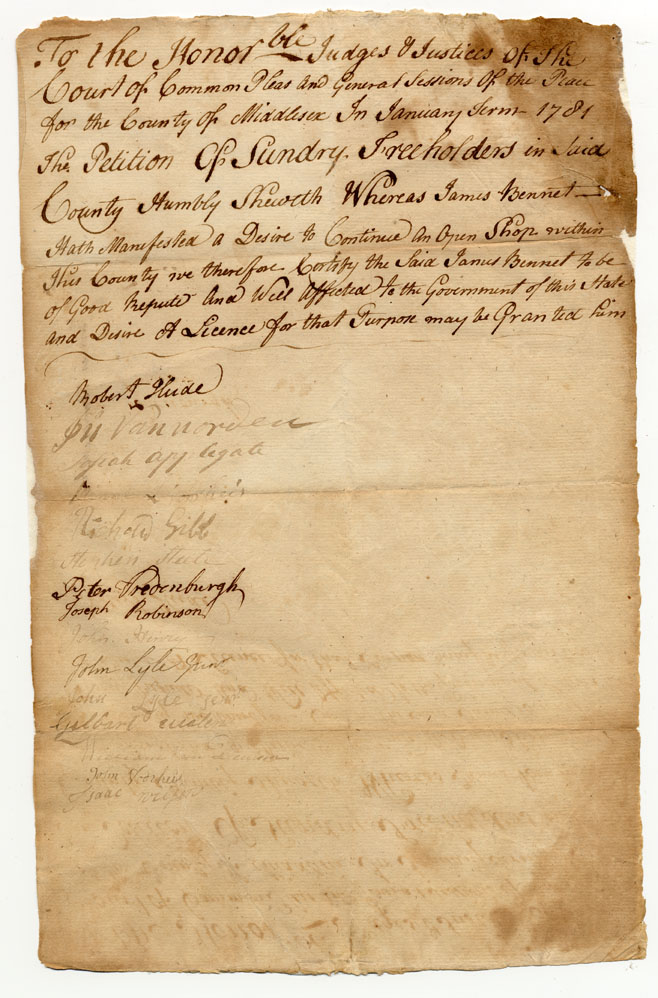 To the Honor ble Judges & Justices of the
Court of Common Pleas And General Sessions Of the Peace
for the County of Middlesex In January Term 1781
The Petition Of Sundry Freeholders in Said
County Humbly Sheweth Whereas James Bennet
Hath Manifested a Desire to Continue An Open Shop within
this County we therefore Certify the Said James Bennet to be
of Good Repute And Well Affected to the Government of this State
and Desire A Licence for that Purpose may be Granted him
Robert Hude
Vannorden
Josiah applegate
Richard Gibb
Stephen
Peter Vredenburgh
Joseph Robinson
John
John Lyle Junr
John Lyle
Gilbart
William
John Voorhees
Isaac